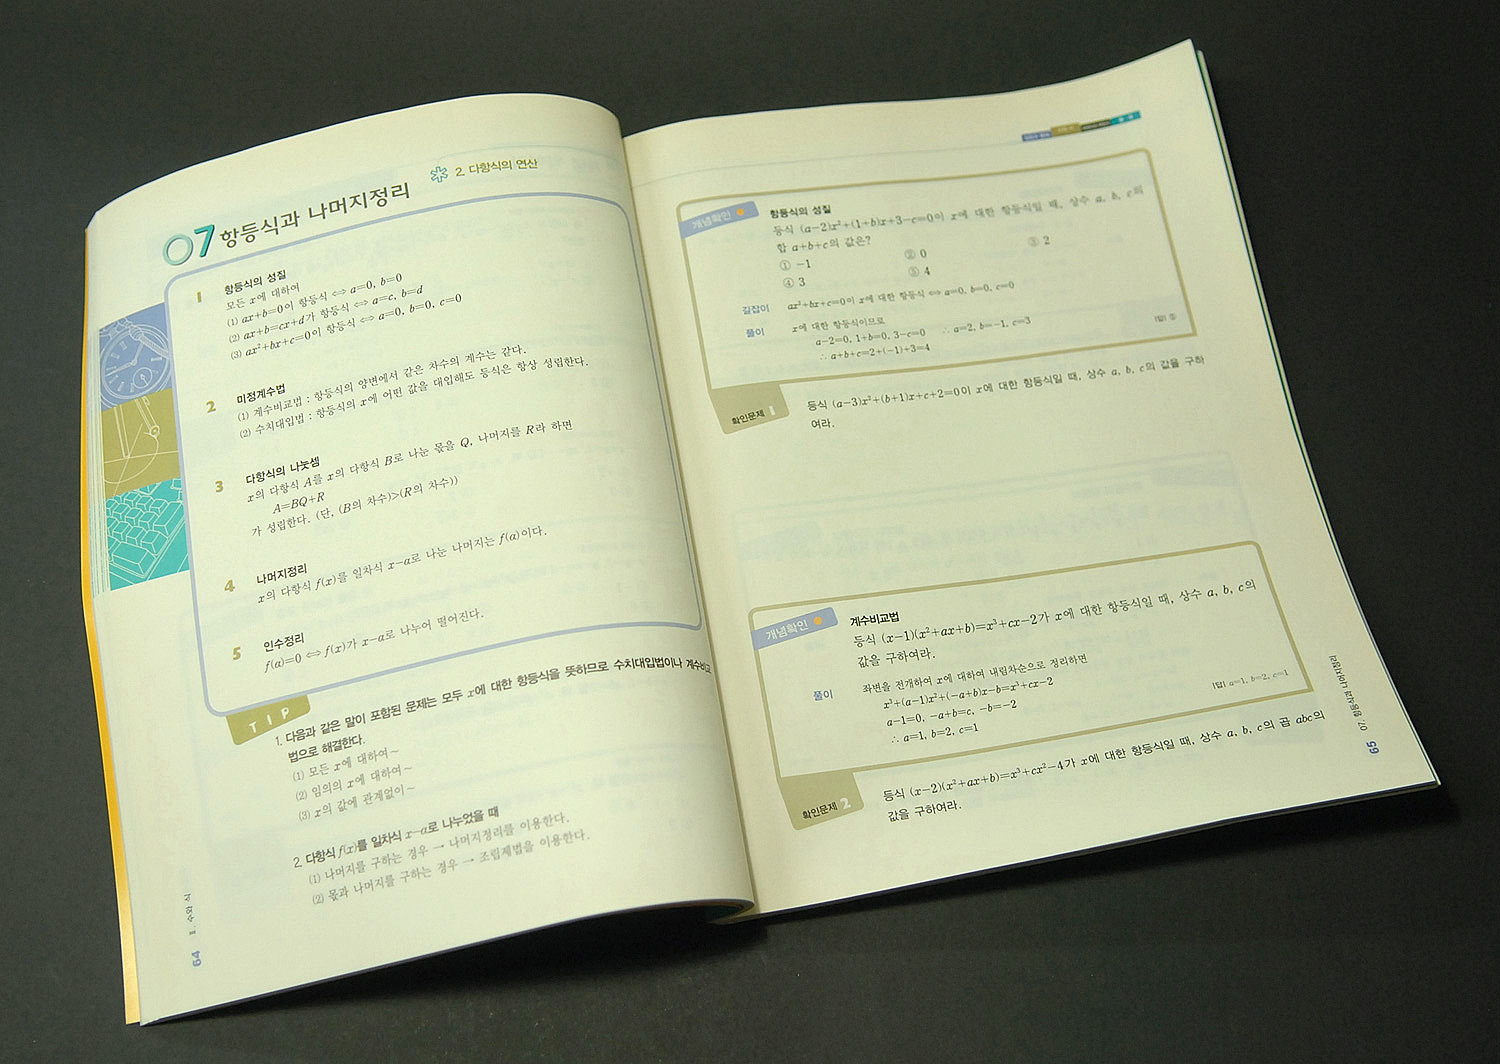 2. 다항식의 연산
07 항등식과 나머지정리
1 항등식의 성질
모든 x에 대하여
(1) ax+b=0이 항등식 ⇔ a=0, b=0
(2) ax+b=cx+d가 항등식 ⇔ a=c, b=d
(3) ax²+bx+c=0이 항등식 ⇔ a=0, b=0, c=0
2 미정계수법
(1) 계수비교법 : 항등식의 양변에서 같은 차수의 계수는 같다.
(2) 수치대입법 : 항등식의 x에 어떤 값을 대입해도 등식은 항상 성립한다.
3 다항식의 나눗셈
x의 다항식 A를 x의 다항식 B로 나눈 몫을 Q, 나머지를 R라 하면
A=BQ+R
가 성립한다. (단, (B의 차수)>(R의 차수))
4 나머지정리
x의 다항식 f(x)를 일차식 x-α로 나눈 나머지는 f(α)이다.
5 인수정리
f(α)=0 ⇔ f(x)가 x-α로 나누어 떨어진다.
TIP
1. 다음과 같은 말이 포함된 문제는 모두 x에 대한 항등식을 뜻하므로 수치대입법이나 계수비교
법으로 해결한다.
(1) 모든 x에 대하여~
(2) 임의의 x에 대하여~
(3) x의 값에 관계없이~
2. 다항식 f(x)를 일차식 x-α로 나누었을 때
(1) 나머지를 구하는 경우 → 나머지정리를 이용한다.
(2) 몫과 나머지를 구하는 경우 → 조립제법을 이용한다.
64 Ⅱ. 수와 식
개념확인 항등식의 성질
등식 (a-2)x²+(1+b)x+3-c=0이 x에 대한 항등식일 때, 상수 a, b, c의
합 a+b+c의 값은?
① -1 ② 0 ③ 2
④ 3 ⑤ 4
길잡이 ax²+bx+c=0이 x에 대한 항등식 ⇔ a=0, b=0, c=0
풀이 x에 대한 항등식이므로
a-2=0, 1+b=0, 3-c=0 ∴ a=2, b=-1, c=3
∴ a+b+c=2+(-1)+3=4
[답] ⑤
확인문제 1 등식 (a-3)x²+(b+1)x+c+2=0이 x에 대한 항등식일 때, 상수 a, b, c의 값을 구하
여라.
개념확인 계수비교법
등식 (x-1)(x²+ax+b)=x³+cx-2가 x에 대한 항등식일 때, 상수 a, b, c의
값을 구하여라.
풀이 좌변을 전개하여 x에 대하여 내림차순으로 정리하면
x³+(a-1)x²+(-a+b)x-b=x³+cx-2
a-1=0, -a+b=c, -b=-2
∴ a=1, b=2, c=1
[답] a=1, b=2, c=1
확인문제 2 등식 (x-2)(x²+ax+b)=x³+cx²-4가 x에 대한 항등식일 때, 상수 a, b, c의 곱 abc의
값을 구하여라.
07. 항등식과 나머지정리 65